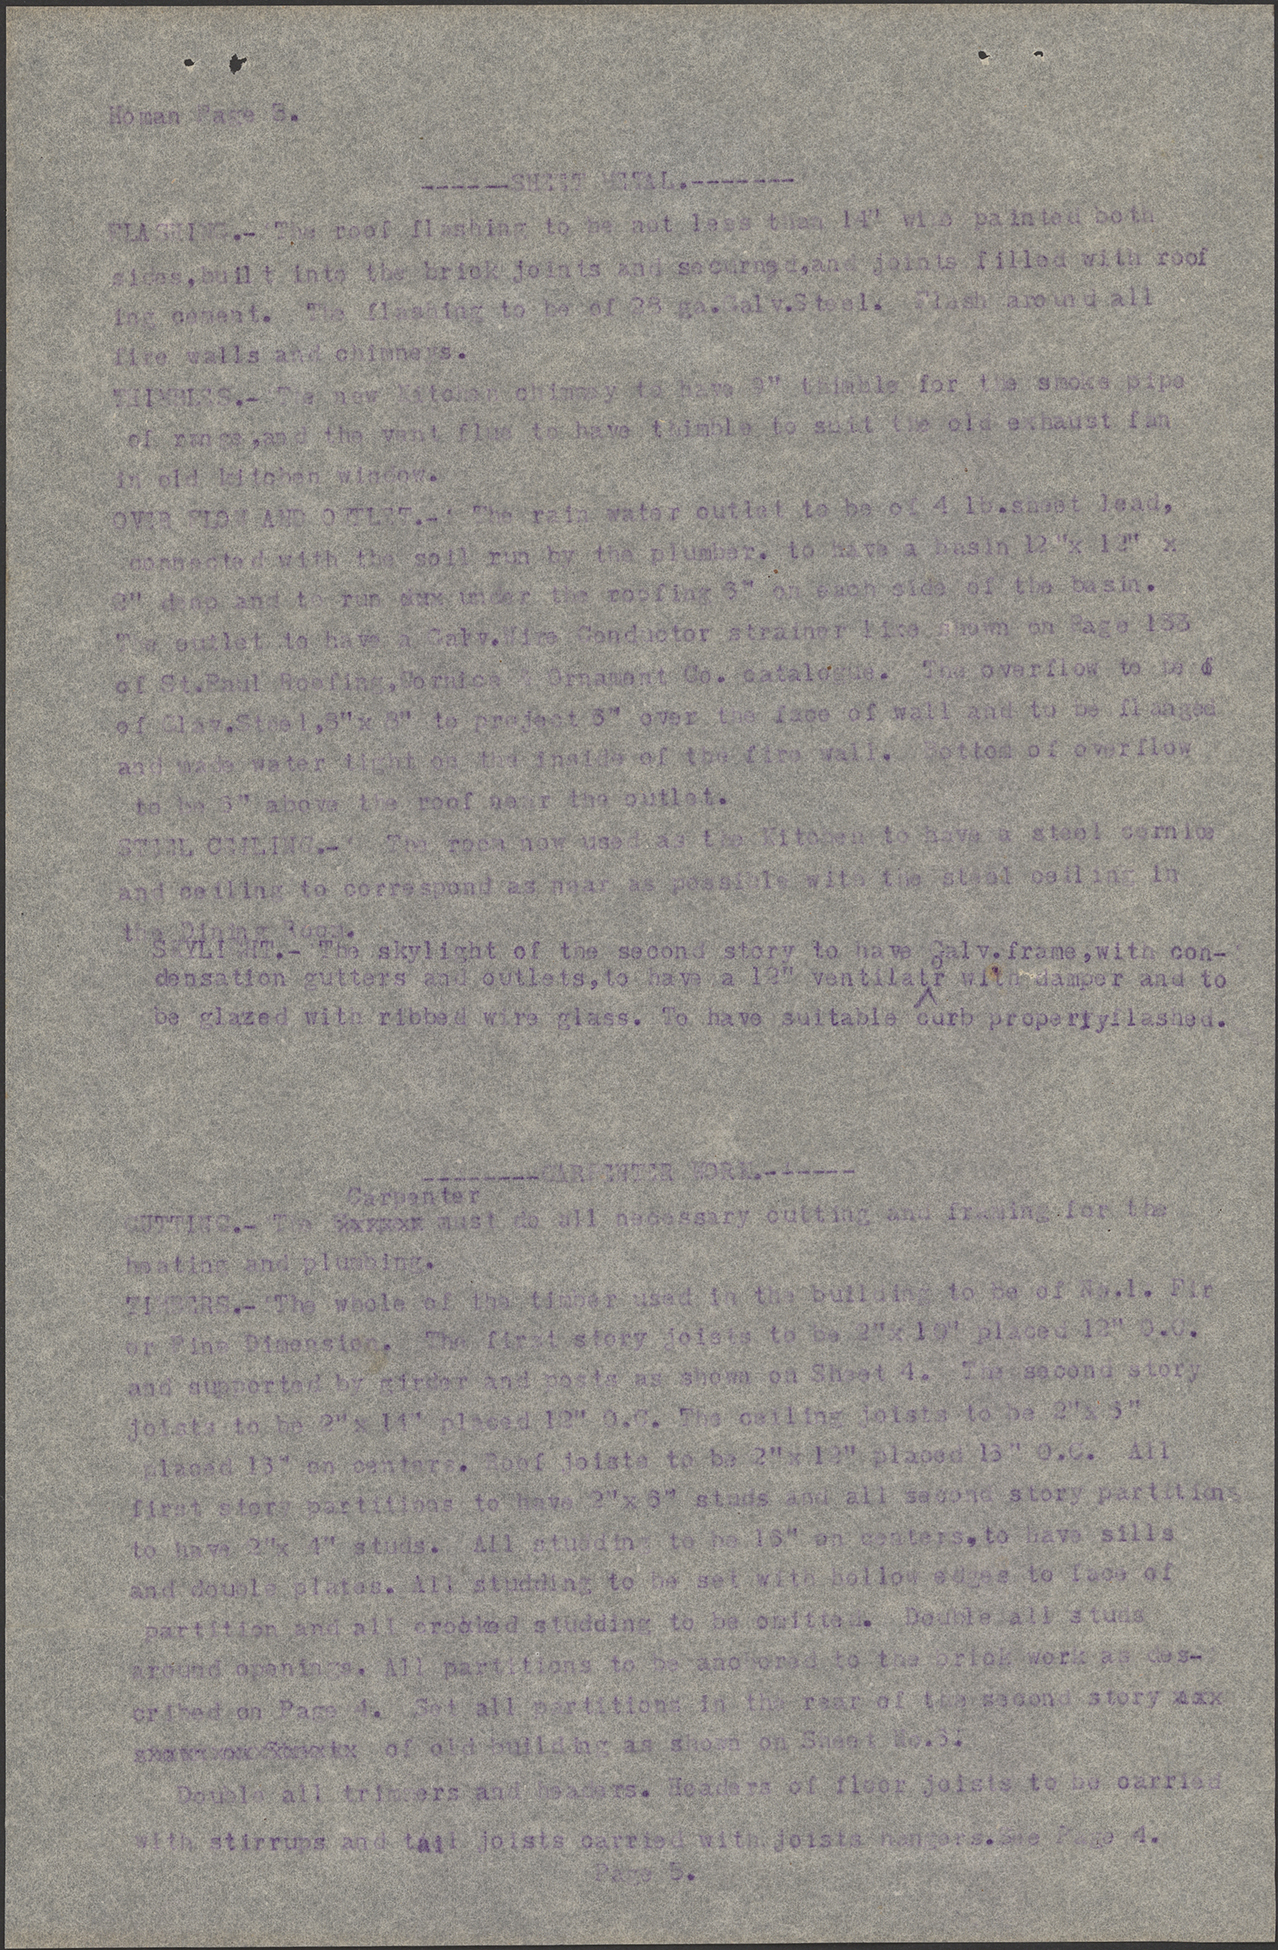 Homan Page 3.
------SHEET METAL.-------
FLASHING.- The roof flashing to be not less than 14" wide painted both
sides,built into the brick joints and secured,and joints filled with roof
ing cement. The flashing to be of 28 ga.Galv.Steel. Flash around all
fire walls and chimneys.
THIMBLES.- The new Kitchen chimney to have 9" thimble for the smoke pipe
of range,and the vent flue to have thimble to suit the old exhaust fan
in old kitchen window.
OVER FLOW AND OUTLET.- The rain water outlet to be of 4 lb.sheet lead,
connected with the soil run by the plumber. to have a basin 12"x 12" x
deep and to run xxx under the roofing 6" on each side of the basin.
The outlet to have a Galv.Wire Conductor strainer like shown on Page 133
of St.Paul Roofing,Cornice & Ornament Co. catalogue. The overflow to be
of Glav.Steel,8"x 8" to project 6" over the face of wall and to be flanged
and made water tight on the inside of the fire wall. Bottom of overflow
to be above the roof near the outlet.
STEEL CEILING.- The room now used as the Kitchen to have a steel cornice
and ceiling to correspond as near as possible with the steel ceiling in
the Dining Room.
SKYLIGHT.- The skylight of the second story to have Galv.frame,with con-
densation gutters and outlets,to have a 12" ventilator with damper and to
be glazed with ribbed wire glass. To have suitable curb properlyflashed.
--------CARPENTER WORK.------
Carpenter
CUTTING.- The xxxxxx must do all necessary cutting and framing for the
heating and plumbing.
TIMBERS.- The whole of the timber used in the building to be of No.1. Fir
or Pine Dimension. The first story joists to be 2"x 10" placed 12" O.C.
and supported by girder and posts as shown on Sheet 4. The second story
joists to be 2"x 14" placed 12" O.C. The ceiling joists to be 2"x 6"
placed 16" on centers. Roof joists to be 2"x 12" placed 16" O.C. All
first story partitions to have 2"x 6" studs and all second story partitions
to have 2"x 4" studs. All studding to be 16" on centers,to have sills
and double plates. All studding to be set with hollow edges to face of
partition and all crooked studding to be omitted. Double all studs
around openings. All partitions to be anchored to the brick work as des-
cribed on Page 4. Set all partitions in the rear of the second story xxx
of old building as shown on Sheet No.3.
Double all trimmers and headers. Headers of floor joists to be carried
with stirrups and tail joists carried with joists hangers.See Page 4.
Page 5.